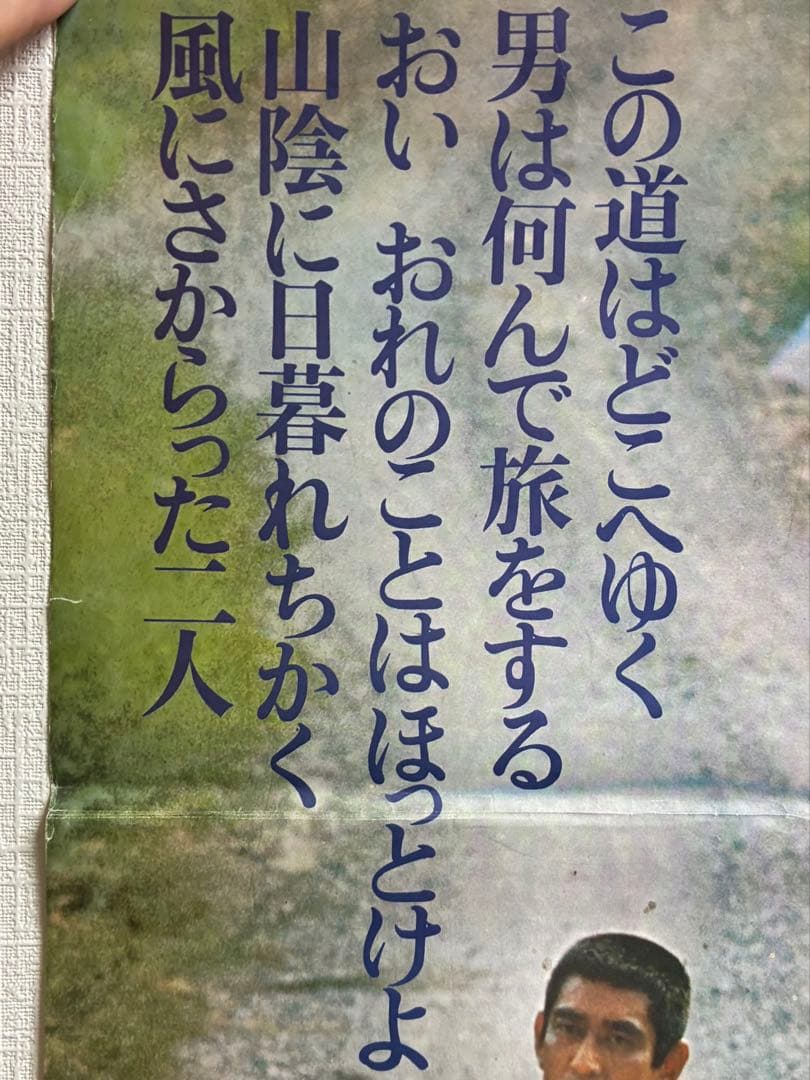 この道はどこへゆく
男は何んで旅をする
おい　おれのことはほっとけよ
山陰に日暮れちかく
風にさからった二人